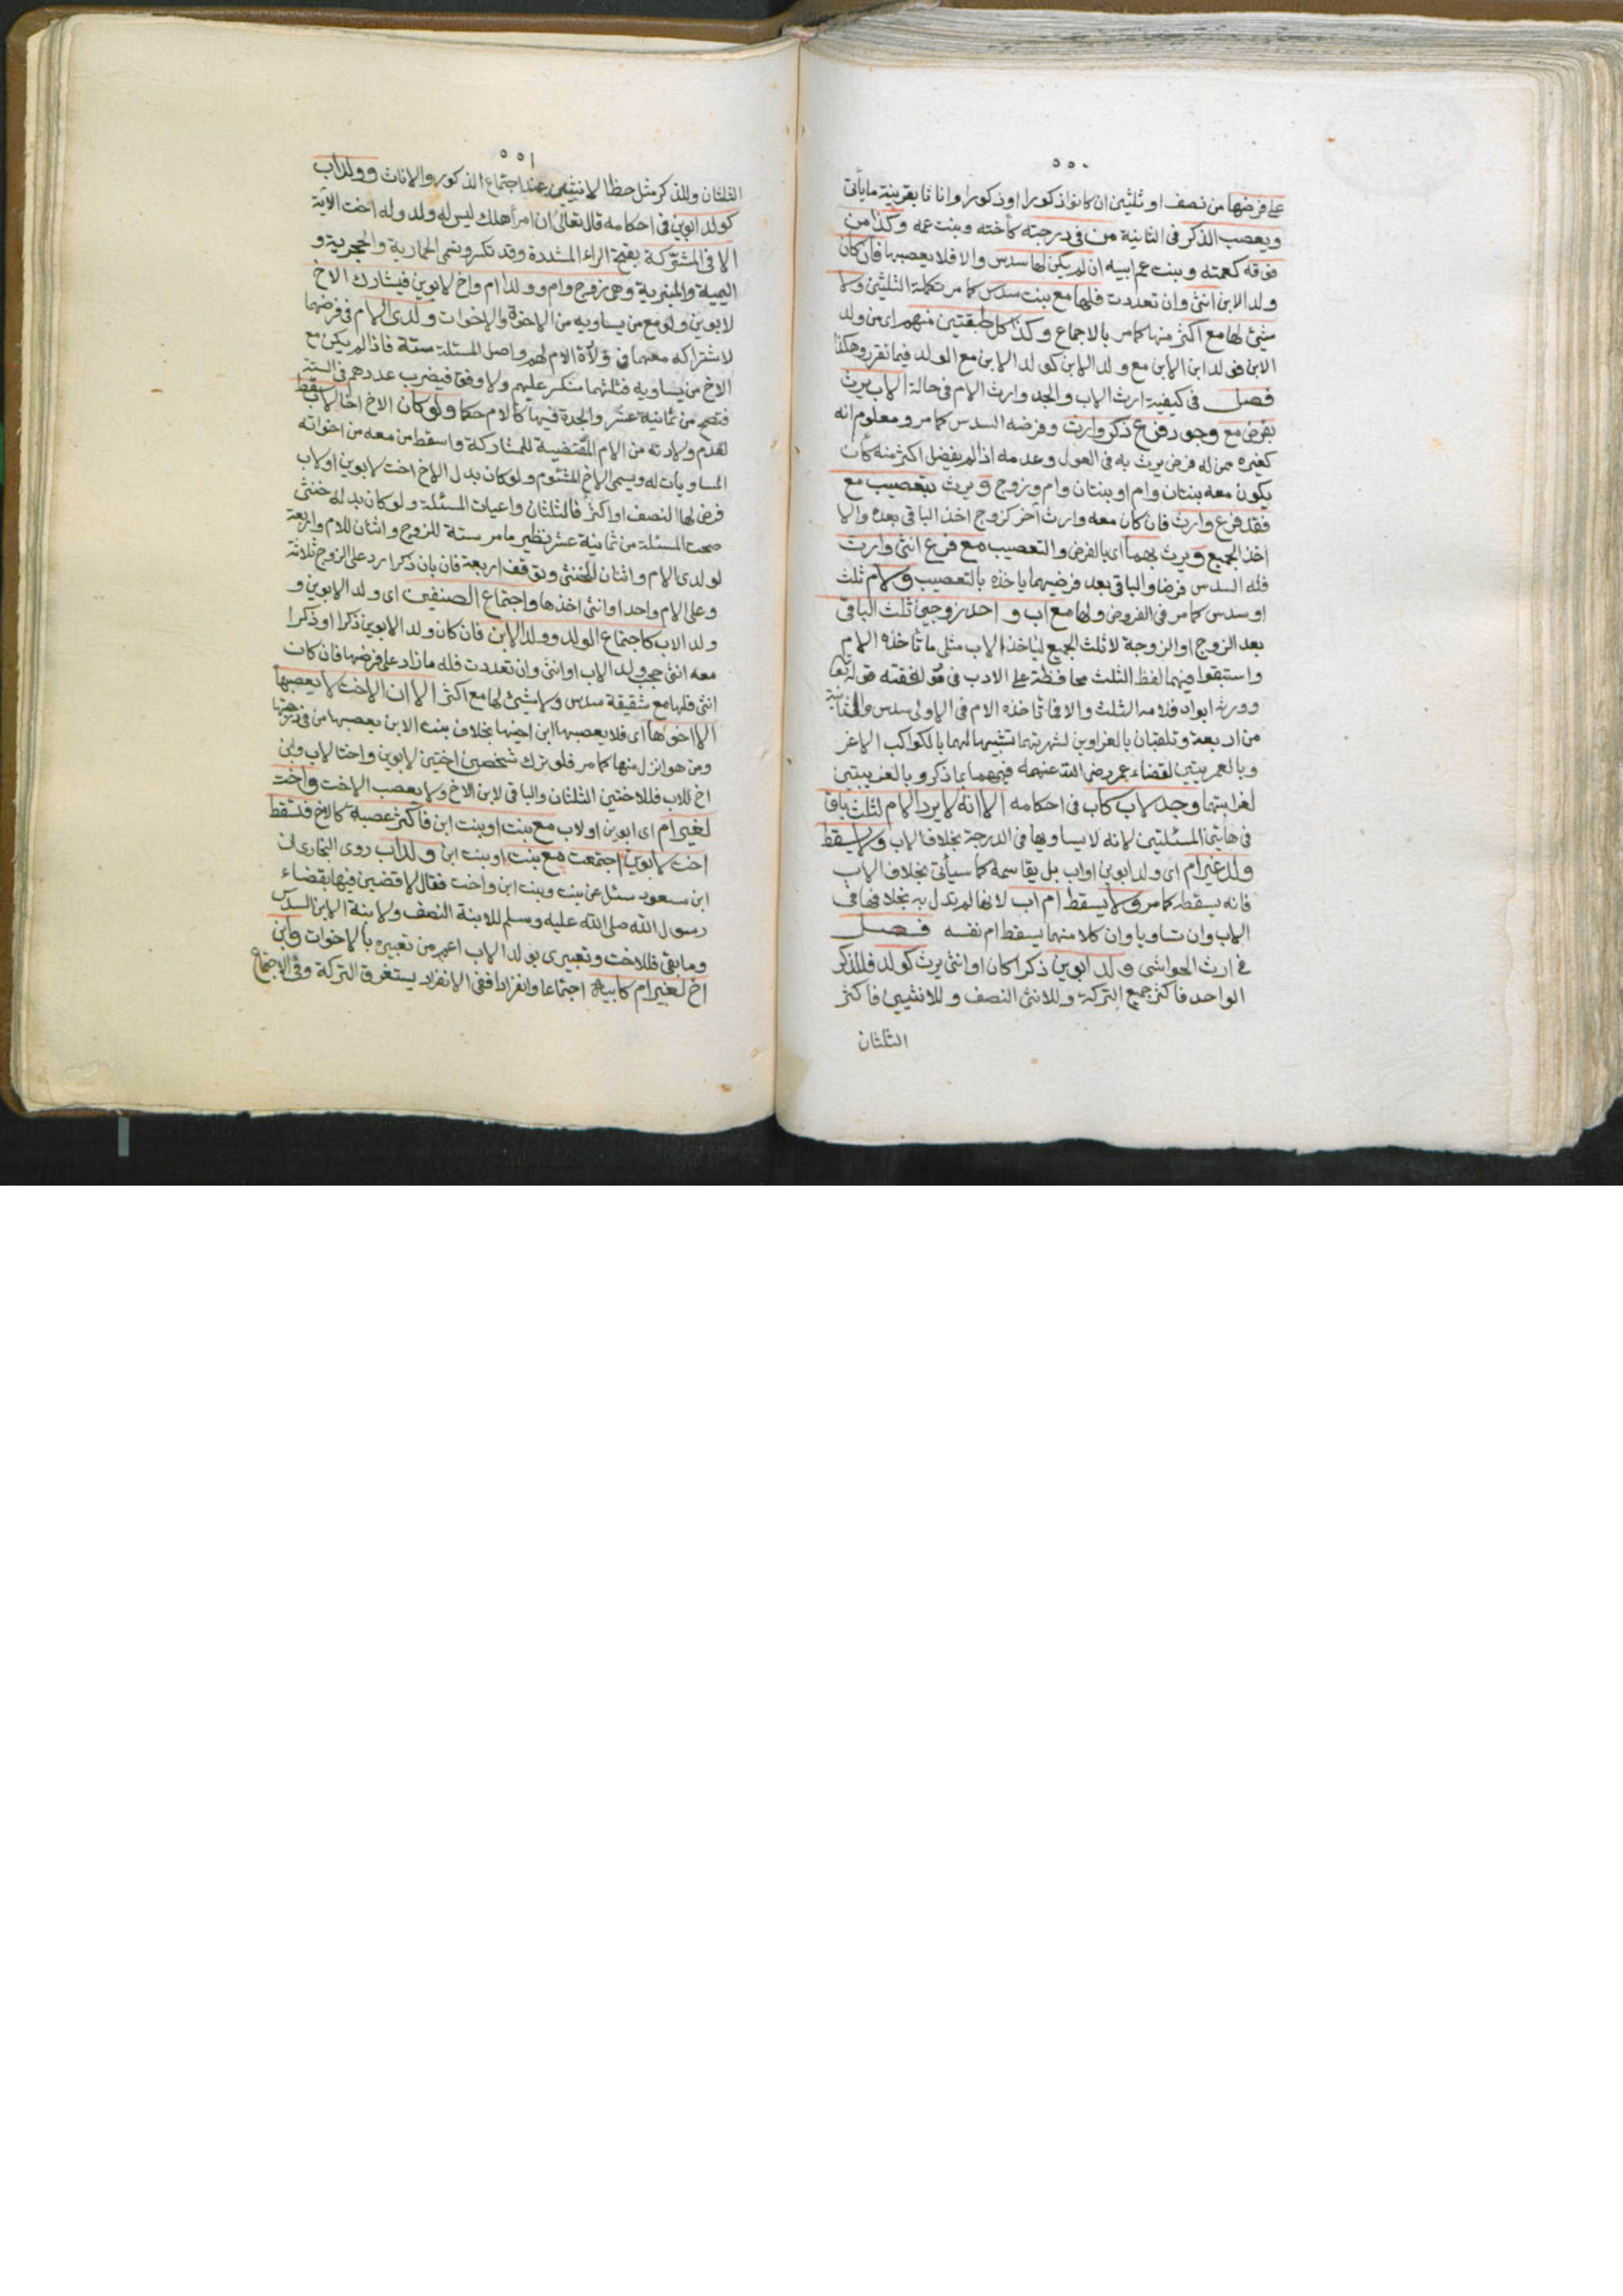 ٥٥٠
على فرضها من نصف او ثلثين ان كانوا ذكورا او ذكورا واناثا بقرينة ما يأتى
ويعصب الذكر فى الثانية من فى درجته كأخته وبنت عمه وكذا من
فوقه كعمته وبنت عم ابيه ان لم يكن لها سدس والا فلا يعصبها فان كان
ولد الابن انثى وان تعددت فلها مع بنت سدس كما مر تكملة الثلثين ولا
شيئ لها مع اكثر منها كما مر بالاجماع وكذا كل طبقتين منهم اى من ولد
الابن فولد ابن الابن مع ولد الابن كولد الابن مع الولد فيما تقرر وهكذا
فصل فى كيفية ارث الاب والجد وارث الام فى حالة الاب يرث
بفرض مع وجود فرع ذكر وارث وفرضه السدس كما مر ومعلوم انه
كغيره ممن له فرض يرث به فى العول وعدمه اذا لم يفضل اكثر منه كأن
يكون معه بنتان وام او بنتان وام وزوج ويرث بتعصيب مع
فقد فرع وارث فان كان معه وارث آخر كزوج اخذ الباقى بعده والا
اخذ الجميع ويرث بهما اى بالفرض والتعصيب مع فرع انثى وارث
فله السدس فرضا والباقى بعد فرضيهما ياخذه بالتعصيب ولام ثلث
او سدس كما مر فى الفروض ولها مع اب واحد زوجين ثلث الباقى
بعد الزوج او الزوجة لا ثلث الجميع لياخذ الاب مثلى ما تأخذه الام
واستبقوا فيهما لفظ الثلث محافظة على الادب فى موافقته قوله تعالى
وورثه ابواه فلامه الثلث والا فما تأخذه الام فى الاولى سدس وفى الثانية
من اربعة وتلقبان بالغراوين لشهرتهما تشبيها لهما بالكواكب الاغر
وبالعمريتين لقضاء عمر رضى الله عنه فيهما بما ذكر وبالغريبتين
لغرابتهما وجد لاب كاب فى احكامه الا انه لا يرد الام لثلث باق
فى هاتين المسئلتين لانه لا يساويها فى الدرجة بخلاف الاب ولا يسقط
ولد غير ام اى ولد ابوين او اب بل يقاسمه كما سيأتى بخلاف الاب
فانه يسقطه كما مر ولا يسقط ام اب لانها لم تدل به بخلافها فى
الاب وان تساويا وان كلا منهما يسقط ام نفسه فصل
فى ارث الحواشى ولد ابوين ذكرا كان او انثى يرث كولد فللذكر
الواحد فاكثر جميع التركة وللانثى النصف وللانثيين فاكثر
الثلثان
٥٥١
الثلثان وللذكر مثل حظ الانثيين عند اجتماع الذكور والاناث وولد اب
كولد ابوين فى احكامه قال تعالى ان امرأ هلك ليس له ولد وله اخت الآية
الا فى المشتركة بفتح الراء المشددة وقد تكسر وتسمى الحمارية والحجرية و
اليمية والمنبرية وهى زوج وام وولدا ام واخ لابوين فيشارك الاخ
لابوين ولو مع من يساويه من الاخوة والاخوات ولدى الام فى فرضهما
لاشتراكه معهما فى ولادة الام لهم واصل المسئلة ستة فاذا لم يكن مع
الاخ من يساويه فثلثهما منكسر عليهم ولا وفق فيضرب عددهم فى الستة
فتصح من ثمانية عشر والجدة فيها كالام حكما ولو كان الاخ اخا لاب سقط
لعدم ولادته من الام المقتضية للمشاركة واسقط من معه من اخواته
المساويات له ويسمى الاخ المشئوم ولو كان بدل الاخ اخت لابوين او لاب
فرض لها النصف او اكثر فالثلثان واعيلت المسئلة ولو كان بدله خنثى
صحت المسئلة من ثمانية عشر نظير ما مر ستة للزوج واثنان للام واربعة
لولدى الام واثنان للخنثى ويوقف اربعة فان بان ذكرا رد على الزوج ثلاثة
وعلى الام واحد او انثى اخذها واجتماع الصنفين اى ولد الابوين و
ولد الاب كاجتماع الولد وولد الابن فان كان ولد الابوين ذكرا او ذكرا
معه انثى حجب ولد الاب او انثى وان تعددت فله ما زاد على فرضها فان كانت
انثى فلها مع شقيقة سدس ولا شيئ لها مع اكثر الا ان الاخت لا يعصبها
الا اخوها اى فلا يعصبها ابن اخيها بخلاف بنت الابن يعصبها من فى درجتها
ومن هو انزل منها كما مر فلو ترك شخصين اختين لابوين واختا لاب وابن
اخ للاب فللاختين الثلثان والباقى لابن الاخ ولا يعصب الاخت واخت
لغير ام اى ابوين او لاب مع بنت او بنت ابن فاكثر عصبة كالاخ فتسقط
اخت لابوين اجتمعت مع بنت او بنت ابن ولد اب روى البخارى ان
ابن مسعود سئل عن بنت وبنت ابن واخت فقال لاقضين فيها بقضاء
رسول الله صلى الله عليه وسلم للابنة النصف ولابنة الابن السدس
وما بقى فللاخت وتعبيرى بولد الاب اعم من تعبيره بالاخوات وابن
اخ لغير ام كابيه اجتماعا وانفرادا ففى الانفراد يستغرق التركة وفى الاجتماع